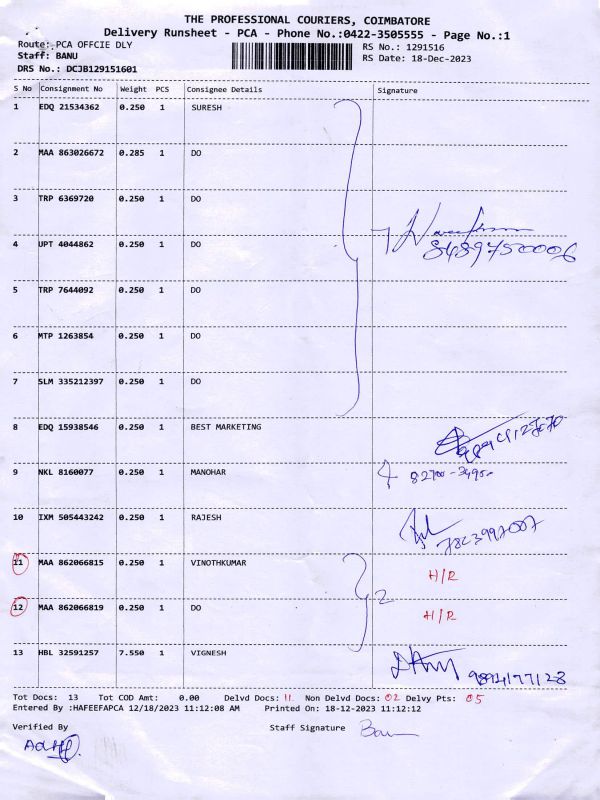 THE PROFESSIONAL COURIERS, COIMBATORE
Delivery Runsheet - PCA - Phone No.:0422-3505555 - Page No.:1
Route: PCA OFFCIE DLY
RS No.: 1291516
Staff: BANU
RS Date: 18-Dec-2023
DRS No.: DCJB129151601
S No Consignment No Weight PCS Consignee Details Signature
1 EDQ 21534362 0.250 1 SURESH
2 MAA 863026672 0.285 1 DO
3 TRP 6369720 0.250 1 DO
4 UPT 4044862 0.250 1 DO
8489750006
5 TRP 7644092 0.250 1 DO
6 MTP 1263854 0.250 1 DO
7 SLM 335212397 0.250 1 DO
8 EDQ 15938546 0.250 1 BEST MARKETING
9 NKL 8160077 0.250 1 MANOHAR
10 IXM 505443242 0.250 1 RAJESH
11 MAA 862066815 0.250 1 VINOTHKUMAR H/R
12 MAA 862066819 0.250 1 DO 2 H/R
13 HBL 32591257 7.550 1 VIGNESH 9894177128
Tot Docs: 13 Tot COD Amt: 0.00 Delvd Docs: 11 Non Delvd Docs: 02 Delvy Pts: 05
Entered By :HAFEEFAPCA 12/18/2023 11:12:08 AM Printed On: 18-12-2023 11:12:12
Verified By Staff Signature